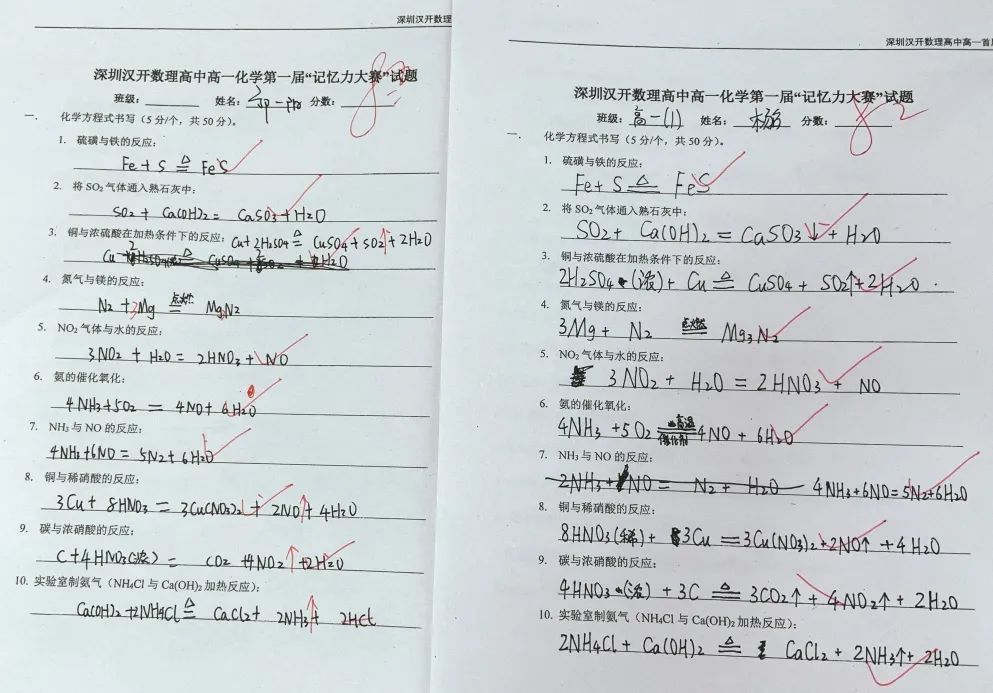 深圳汉开数理
深圳汉开数理高中高一化学第一届“记忆力大赛”试题
班级:________ 姓名: 分数:
一. 化学方程式书写（5分/个，共50分）。
1. 硫磺与铁的反应:
Fe + S ≜ FeS
2. 将SO₂气体通入熟石灰中:
SO₂ + Ca(OH)₂ = CaSO₃ + H₂O
3. 铜与浓硫酸在加热条件下的反应: Cu + 2H₂SO₄ ≜ CuSO₄ + SO₂↑ + 2H₂O
4. 氮气与镁的反应:
N₂ + 3Mg 点燃 Mg₃N₂
5. NO₂气体与水的反应:
3NO₂ + H₂O = 2HNO₃ + NO
6. 氨的催化氧化:
4NH₃ + 5O₂ = 4NO + 6H₂O
7. NH₃与NO的反应:
4NH₃ + 6NO = 5N₂ + 6H₂O
8. 铜与稀硝酸的反应:
3Cu + 8HNO₃ = 3Cu(NO₃)₂ + 2NO↑ + 4H₂O
9. 碳与浓硝酸的反应:
C + 4HNO₃(浓) = CO₂ + 4NO₂↑ + 2H₂O
10. 实验室制氨气（NH₄Cl与Ca(OH)₂加热反应）:
Ca(OH)₂ + 2NH₄Cl ≜ CaCl₂ + 2NH₃↑ + 2HCl
深圳汉开数理高中高一首
深圳汉开数理高中高一化学第一届“记忆力大赛”试题
班级: 高一(1) 姓名: 分数: 82
一. 化学方程式书写（5分/个，共50分）。
1. 硫磺与铁的反应:
Fe + S ≜ FeS
2. 将SO₂气体通入熟石灰中:
SO₂ + Ca(OH)₂ = CaSO₃↓ + H₂O
3. 铜与浓硫酸在加热条件下的反应:
2H₂SO₄(浓) + Cu ≜ CuSO₄ + SO₂↑ + 2H₂O
4. 氮气与镁的反应:
3Mg + N₂ 点燃 Mg₃N₂
5. NO₂气体与水的反应:
3NO₂ + H₂O = 2HNO₃ + NO
6. 氨的催化氧化:
4NH₃ + 5O₂ 高温 催化剂 4NO + 6H₂O
7. NH₃与NO的反应:
2NH₃ + NO = N₂ + H₂O 4NH₃ + 6NO = 5N₂ + 6H₂O
8. 铜与稀硝酸的反应:
8HNO₃(稀) + 3Cu = 3Cu(NO₃)₂ + 2NO↑ + 4H₂O
9. 碳与浓硝酸的反应:
4HNO₃(浓) + 3C ≜ 3CO₂↑ + 4NO₂↑ + 2H₂O
10. 实验室制氨气（NH₄Cl与Ca(OH)₂加热反应）:
2NH₄Cl + Ca(OH)₂ ≜ CaCl₂ + 2NH₃↑ + 2H₂O